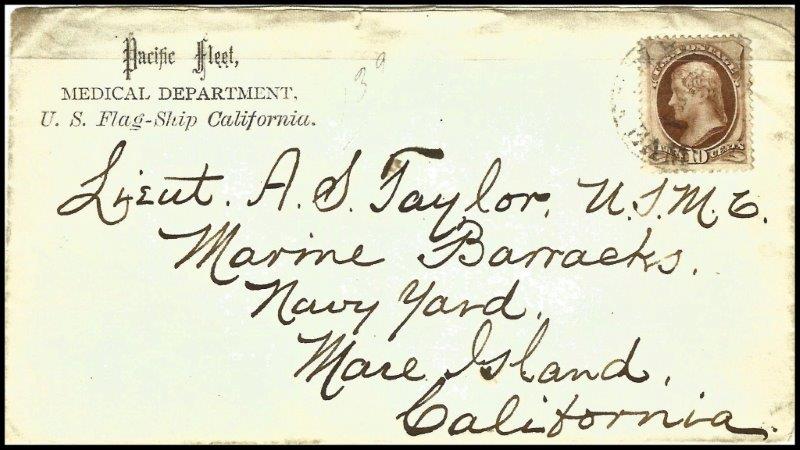 Pacific Fleet,
MEDICAL DEPARTMENT,
U. S. Flag-Ship California.
39
U.S. POSTAGE
CENTS
Lieut. A. S. Taylor, U.S.M.C.
Marine Barracks,
Navy Yard,
Mare Island,
California.